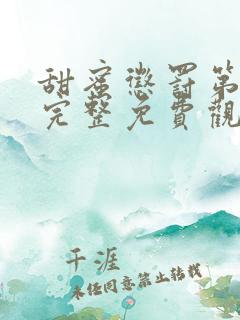 甜蜜懲罰第
完整免費觀
千涯
未经同意禁止转载